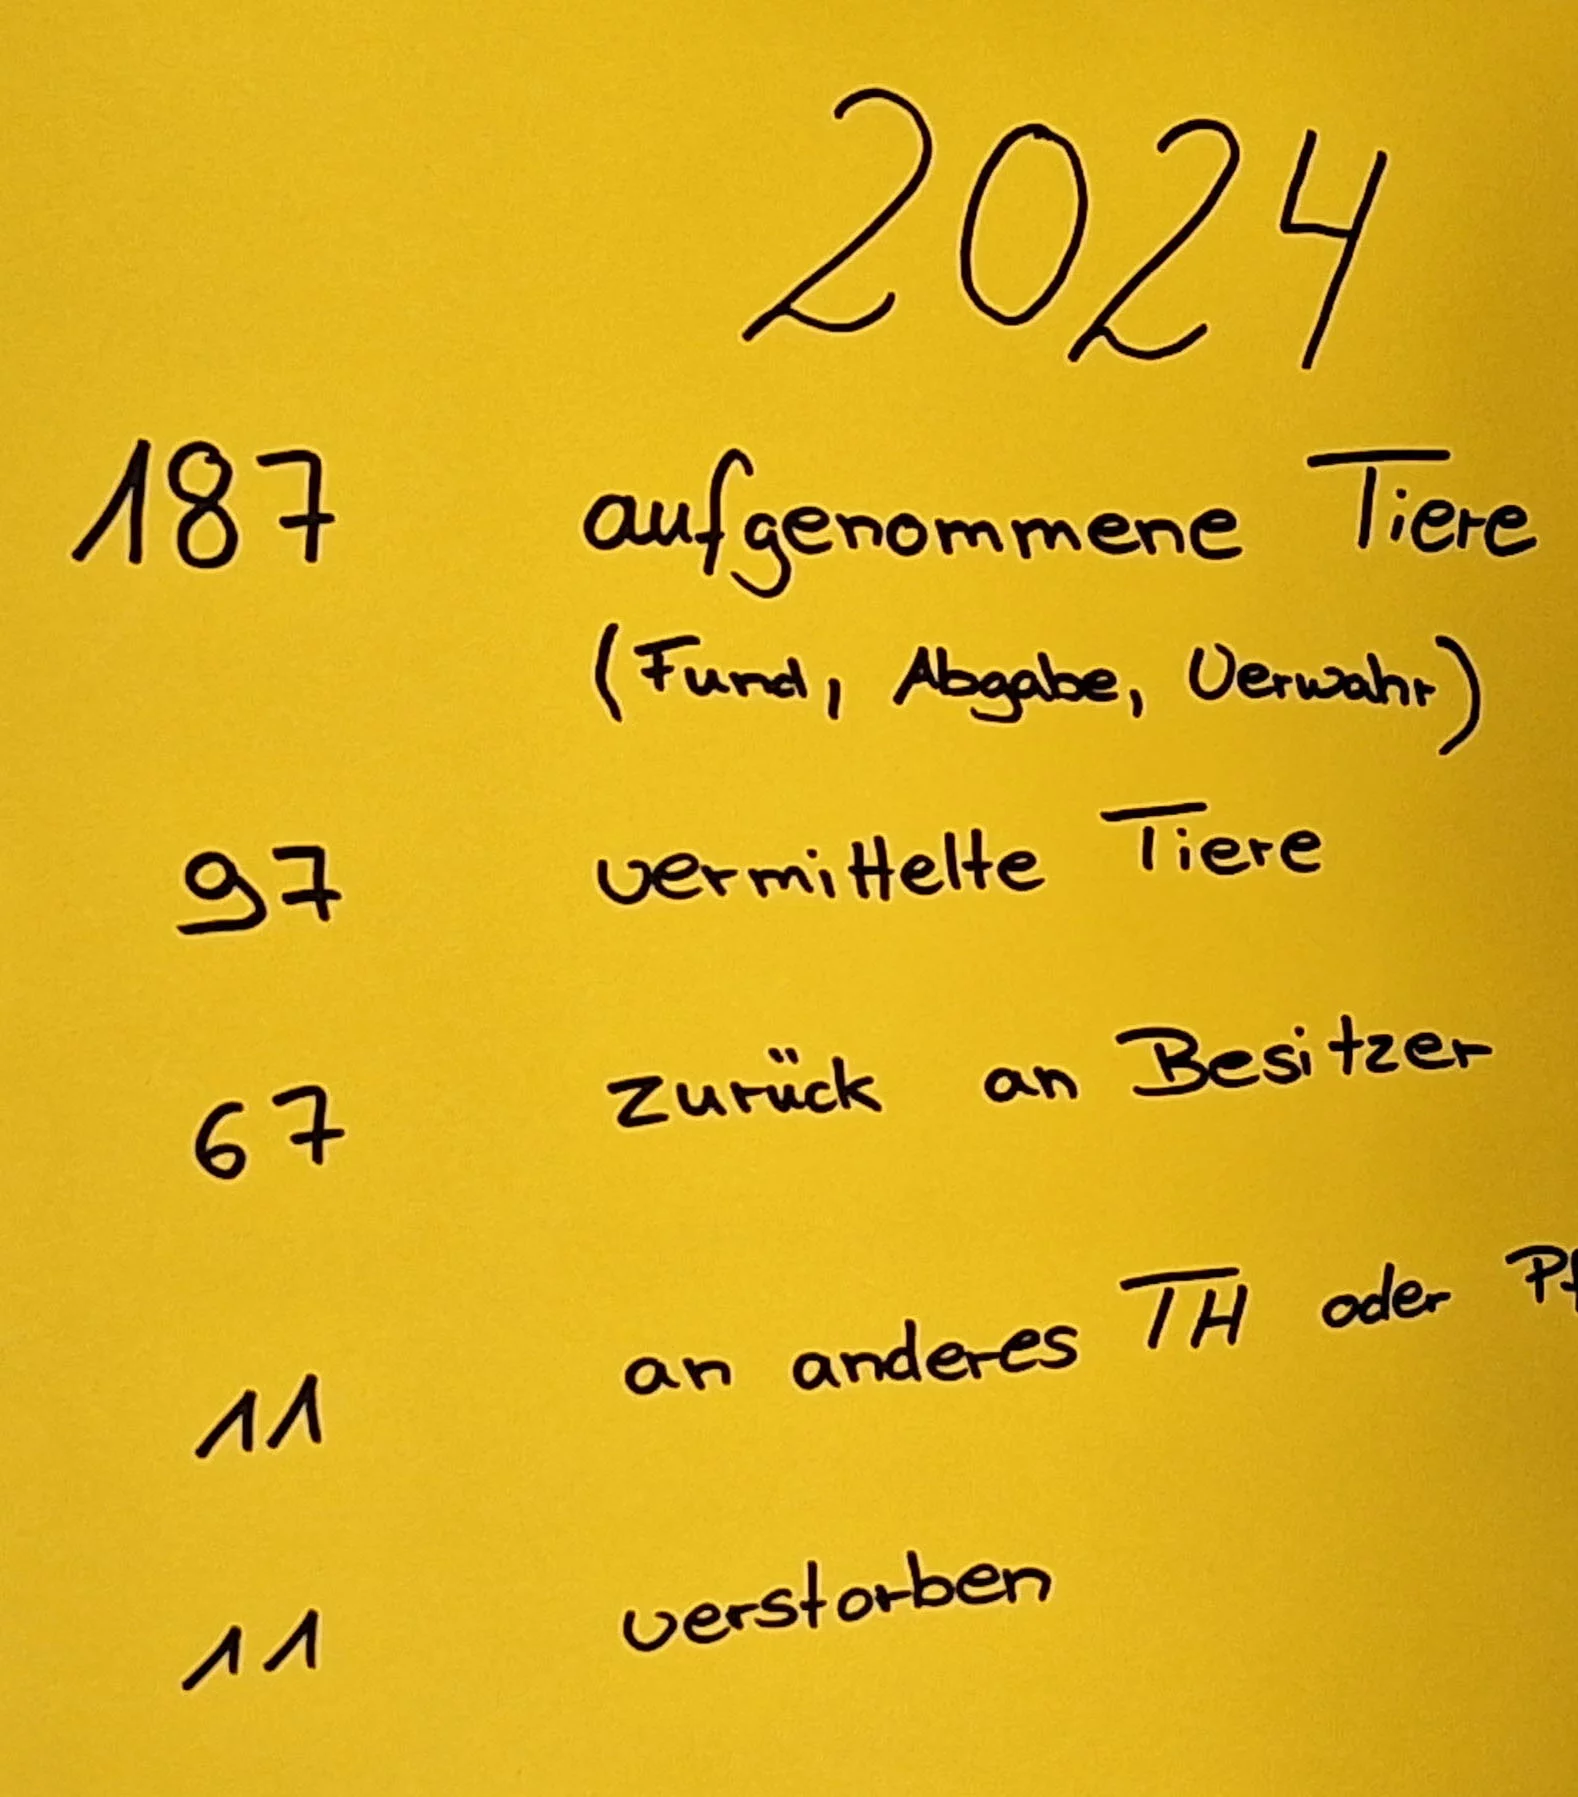 2024
187 aufgenommene Tiere
(Fund, Abgabe, Verwahr)
97 vermittelte Tiere
67 zurück an Besitzer
11 an anderes TH oder
11 verstorben